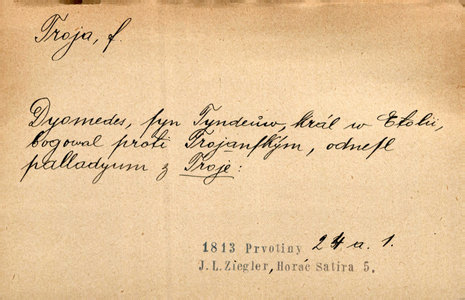 Troja, f.
Dyomedes, syn Tyndeůw, král w Etolii,
bogowal proti Trojanſkým, odneſl
palladyum z Troje:
1813 Prvotiny 24 a. 1.
J.L.Ziegler, Horác Satira 5.